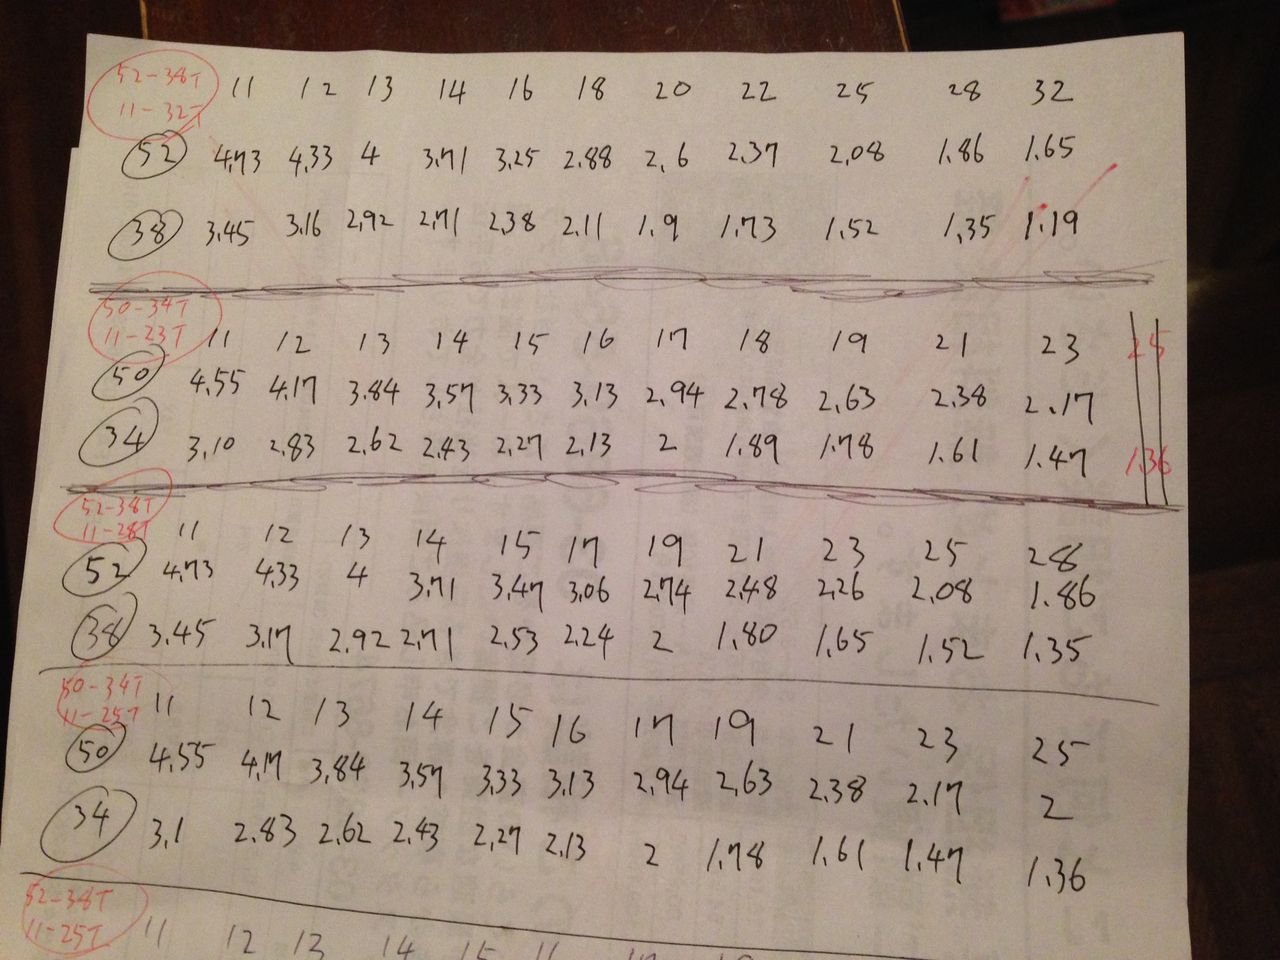 52-38T
11-32T
11 12 13 14 16 18 20 22 25 28 32
52 4.73 4.33 4 3.71 3.25 2.88 2.6 2.37 2.08 1.86 1.65
38 3.45 3.16 2.92 2.71 2.38 2.11 1.9 1.73 1.52 1.35 1.19
50-34T
11-23T
11 12 13 14 15 16 17 18 19 21 23 25
50 4.55 4.17 3.84 3.57 3.33 3.13 2.94 2.78 2.63 2.38 2.17
34 3.10 2.83 2.62 2.43 2.27 2.13 2 1.89 1.78 1.61 1.47 1.36
52-38T
11-28T
11 12 13 14 15 17 19 21 23 25 28
52 4.73 4.33 4 3.71 3.47 3.06 2.74 2.48 2.26 2.08 1.86
38 3.45 3.17 2.92 2.71 2.53 2.24 2 1.80 1.65 1.52 1.35
50-34T
11-25T
11 12 13 14 15 16 17 19 21 23 25
50 4.55 4.17 3.84 3.57 3.33 3.13 2.94 2.63 2.38 2.17 2
34 3.1 2.83 2.62 2.43 2.27 2.13 2 1.78 1.61 1.47 1.36
52-38T
11-25T
11 12 13 14 15